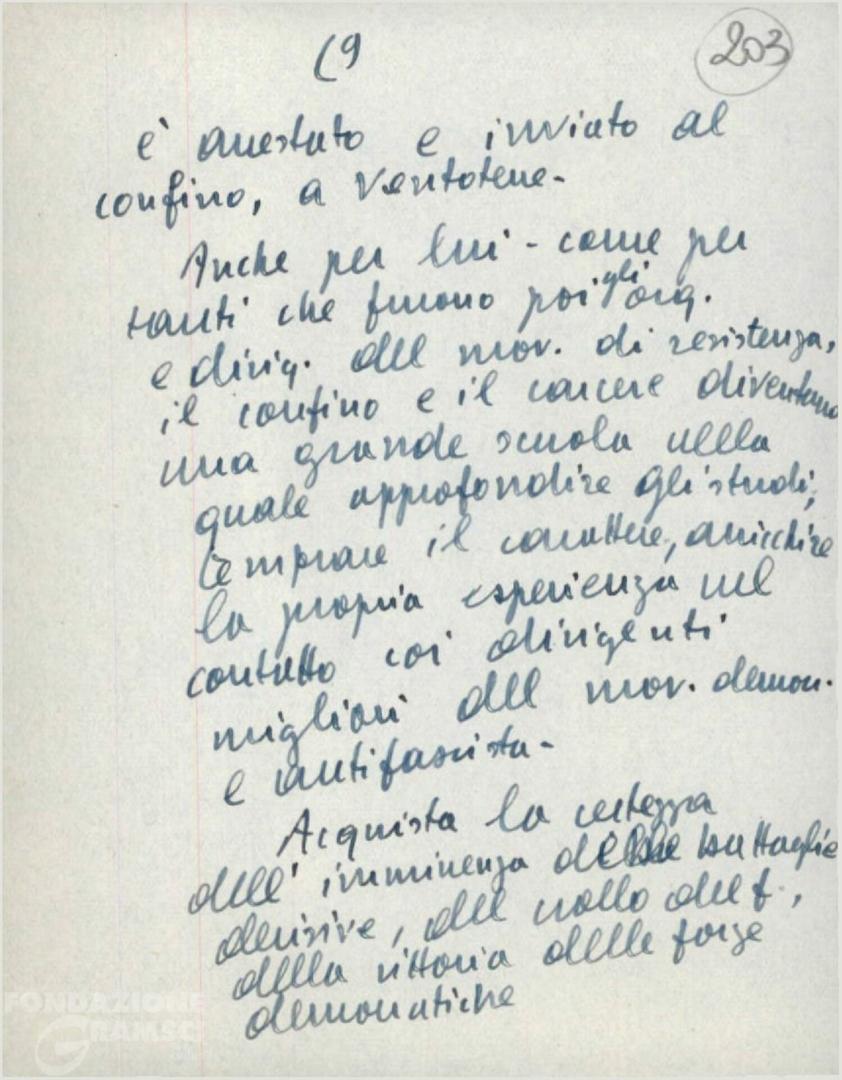 (9
203
è arrestato e inviato al
confino, a Ventotene-
Anche per lui - come per
tanti che furono poi gli org.
e dirig. del mov. di resistenza,
il confino e il carcere diventano
una grande scuola nella
quale approfondire gli studi,
temprare il carattere, arricchire
la propria esperienza nel
contatto coi dirigenti
migliori del mov. democr.
e antifascista-
Acquista la certezza
dell'imminenza delle battaglie
decisive, del crollo del f.,
della vittoria delle forze
democratiche
FONDAZIONE
GRAMSCI